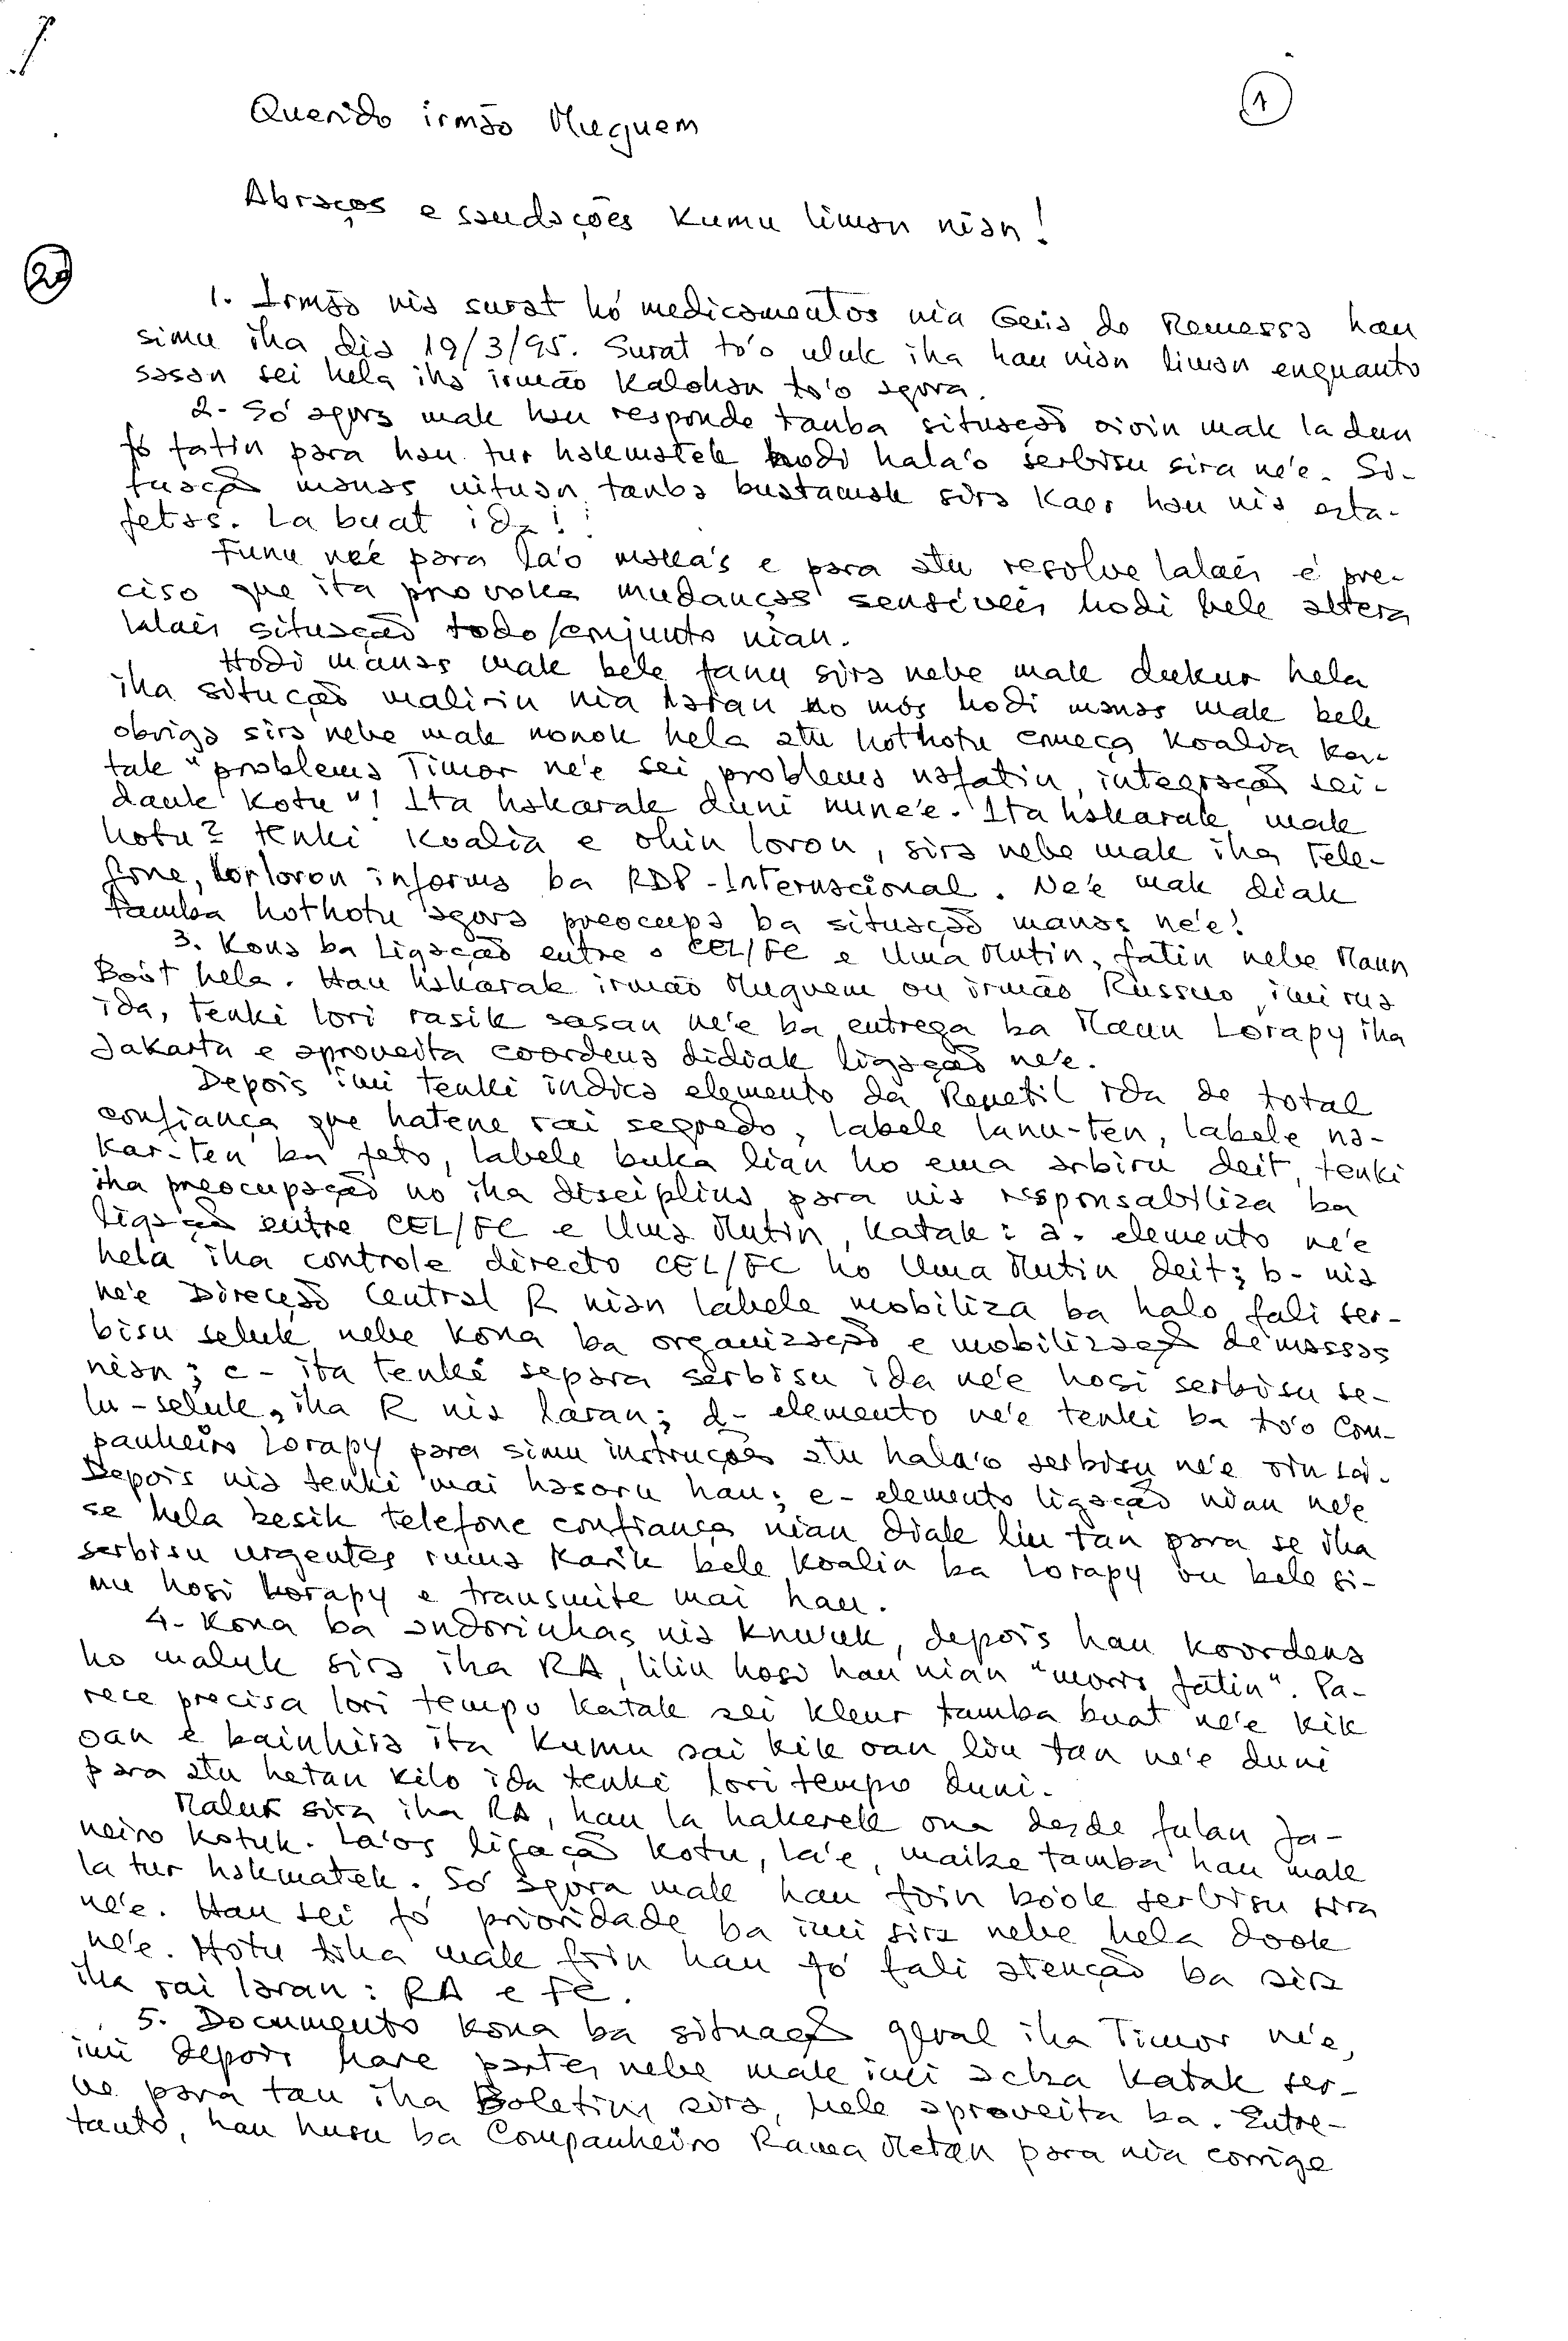 1
Querido irmão Muguem
Abraços e saudações Kumu liman nian!
20
1. Irmão nia surat hó medicamentos nia Geria de Remessa hau
simu iha dia 19/3/95. Surat to'o uluk iha hau nian liman enquanto
sasan sei hela iha irmão Kalohan to'o agora.
2- Só agora mak hau responde tamba situação oioin mak la dun
fó fatin para hau tur hakmatek hodi hala'o serbisu sira ne'e. Si-
tuação manas nituan tamba bustamak sira Kaer hau nia esta-
fetas. La buat ida!
Funu ne'e para la'o maka's e para atu resolve lalais é pre-
ciso que ita provoka mudanças sensíveis hodi bele altera
lalais situação todo/conjunto nian.
Hodi manas mak bele fanu sira nebe mak dukur hela
iha situção malirin nia laran no mós hodi manas mak bele
obriga sira nebe mak nonok hela atu hothotu começa koalia ka-
tak "problema Timor ne'e sei problema nafatin, integração sei-
dauk kotu"! Ita hakarak duni nune'e. Ita hakarak mak
hotu? tenki koalia e ohin loron, sira nebe mak iha Tele-
fone, lorloron informa ba RDP-Internacional. Ne'e mak diak
tamba hothotu agora preocupa ba situação manas ne'e!
3. Kona ba ligação entre o CEL/FC e Uma Mutin, fatin nebe Maun
Boót hela. Hau hakarak irmão Muguem ou irmão Russuo, imi rua
ida, tenki lori rasik sasan ne'e ba entrega ba Maun Lorapy iha
Jakarta e aproveita coordena didiak ligação ne'e.
Depois imi tenki indica elemento da Renetil ida de total
confiança que hatene rai segredo, labele lanu-ten, labele na-
kar-ten ba feto, labele buka lian ho ema arbiru deit, tenki
iha preocupação no iha disciplina para nia responsabiliza ba
ligação entre CEL/FC e Uma Mutin, katak: a- elemento ne'e
hela iha controle directo CEL/FC ho Uma Mutin deit; b- nia
ne'e Direcção Central R nian labele mobiliza ba halo fali ser-
bisu seluk nebe kona ba organização e mobilização de massas
nian; c- ita tenki separa serbisu ida ne'e hosi serbisu se-
lu-seluk, iha R nia laran; d- elemento ne'e tenki ba to'o Com-
panheiro Lorapy para simu instruções atu hala'o serbisu ne'e oin sá.
Depois nia tenki mai hasoru hau; e- elemento ligação nian ne'e
se hela besik telefone confiança nian diak liu tan para se iha
serbisu urgentes ruma karik bele koalia ba Lorapy ou bele si-
mu hosi Lorapy e transmite mai hau.
4- Kona ba andorinhas nia knuuk, depois hau koordena
ho maluk sira iha RA, liliu hosi hau nian "moris fatin". Pa-
rece precisa lori tempo katak sei kleur tamba buat ne'e kik
oan e bainhira ita kumu sai kik oan liu tan ne'e duni
para atu hetan kilo ida tenki lori tempo duni.
Maluk sira iha RA, hau la hakerek ona desde fulan Ja-
neiro kotuk. La'os ligação kotu, la'e, maibe tamba hau mak
la tur hakmatek. Só agora mak hau foin book serbisu sira
ne'e. Hau sei fó prioridade ba imi sira nebe hela dook
ne'e. Hotu tiha mak foin hau fó fali atenção ba sira
iha rai laran: RA e FC.
5. Documento kona ba situação geral iha Timor ne'e,
imi depois hare partes nebe mak imi acha katak ser-
ve para tau iha Boletim sira, bele aproveita ba. Entre-
tanto, hau husu ba Companheiro Rama Metan para nia corrige